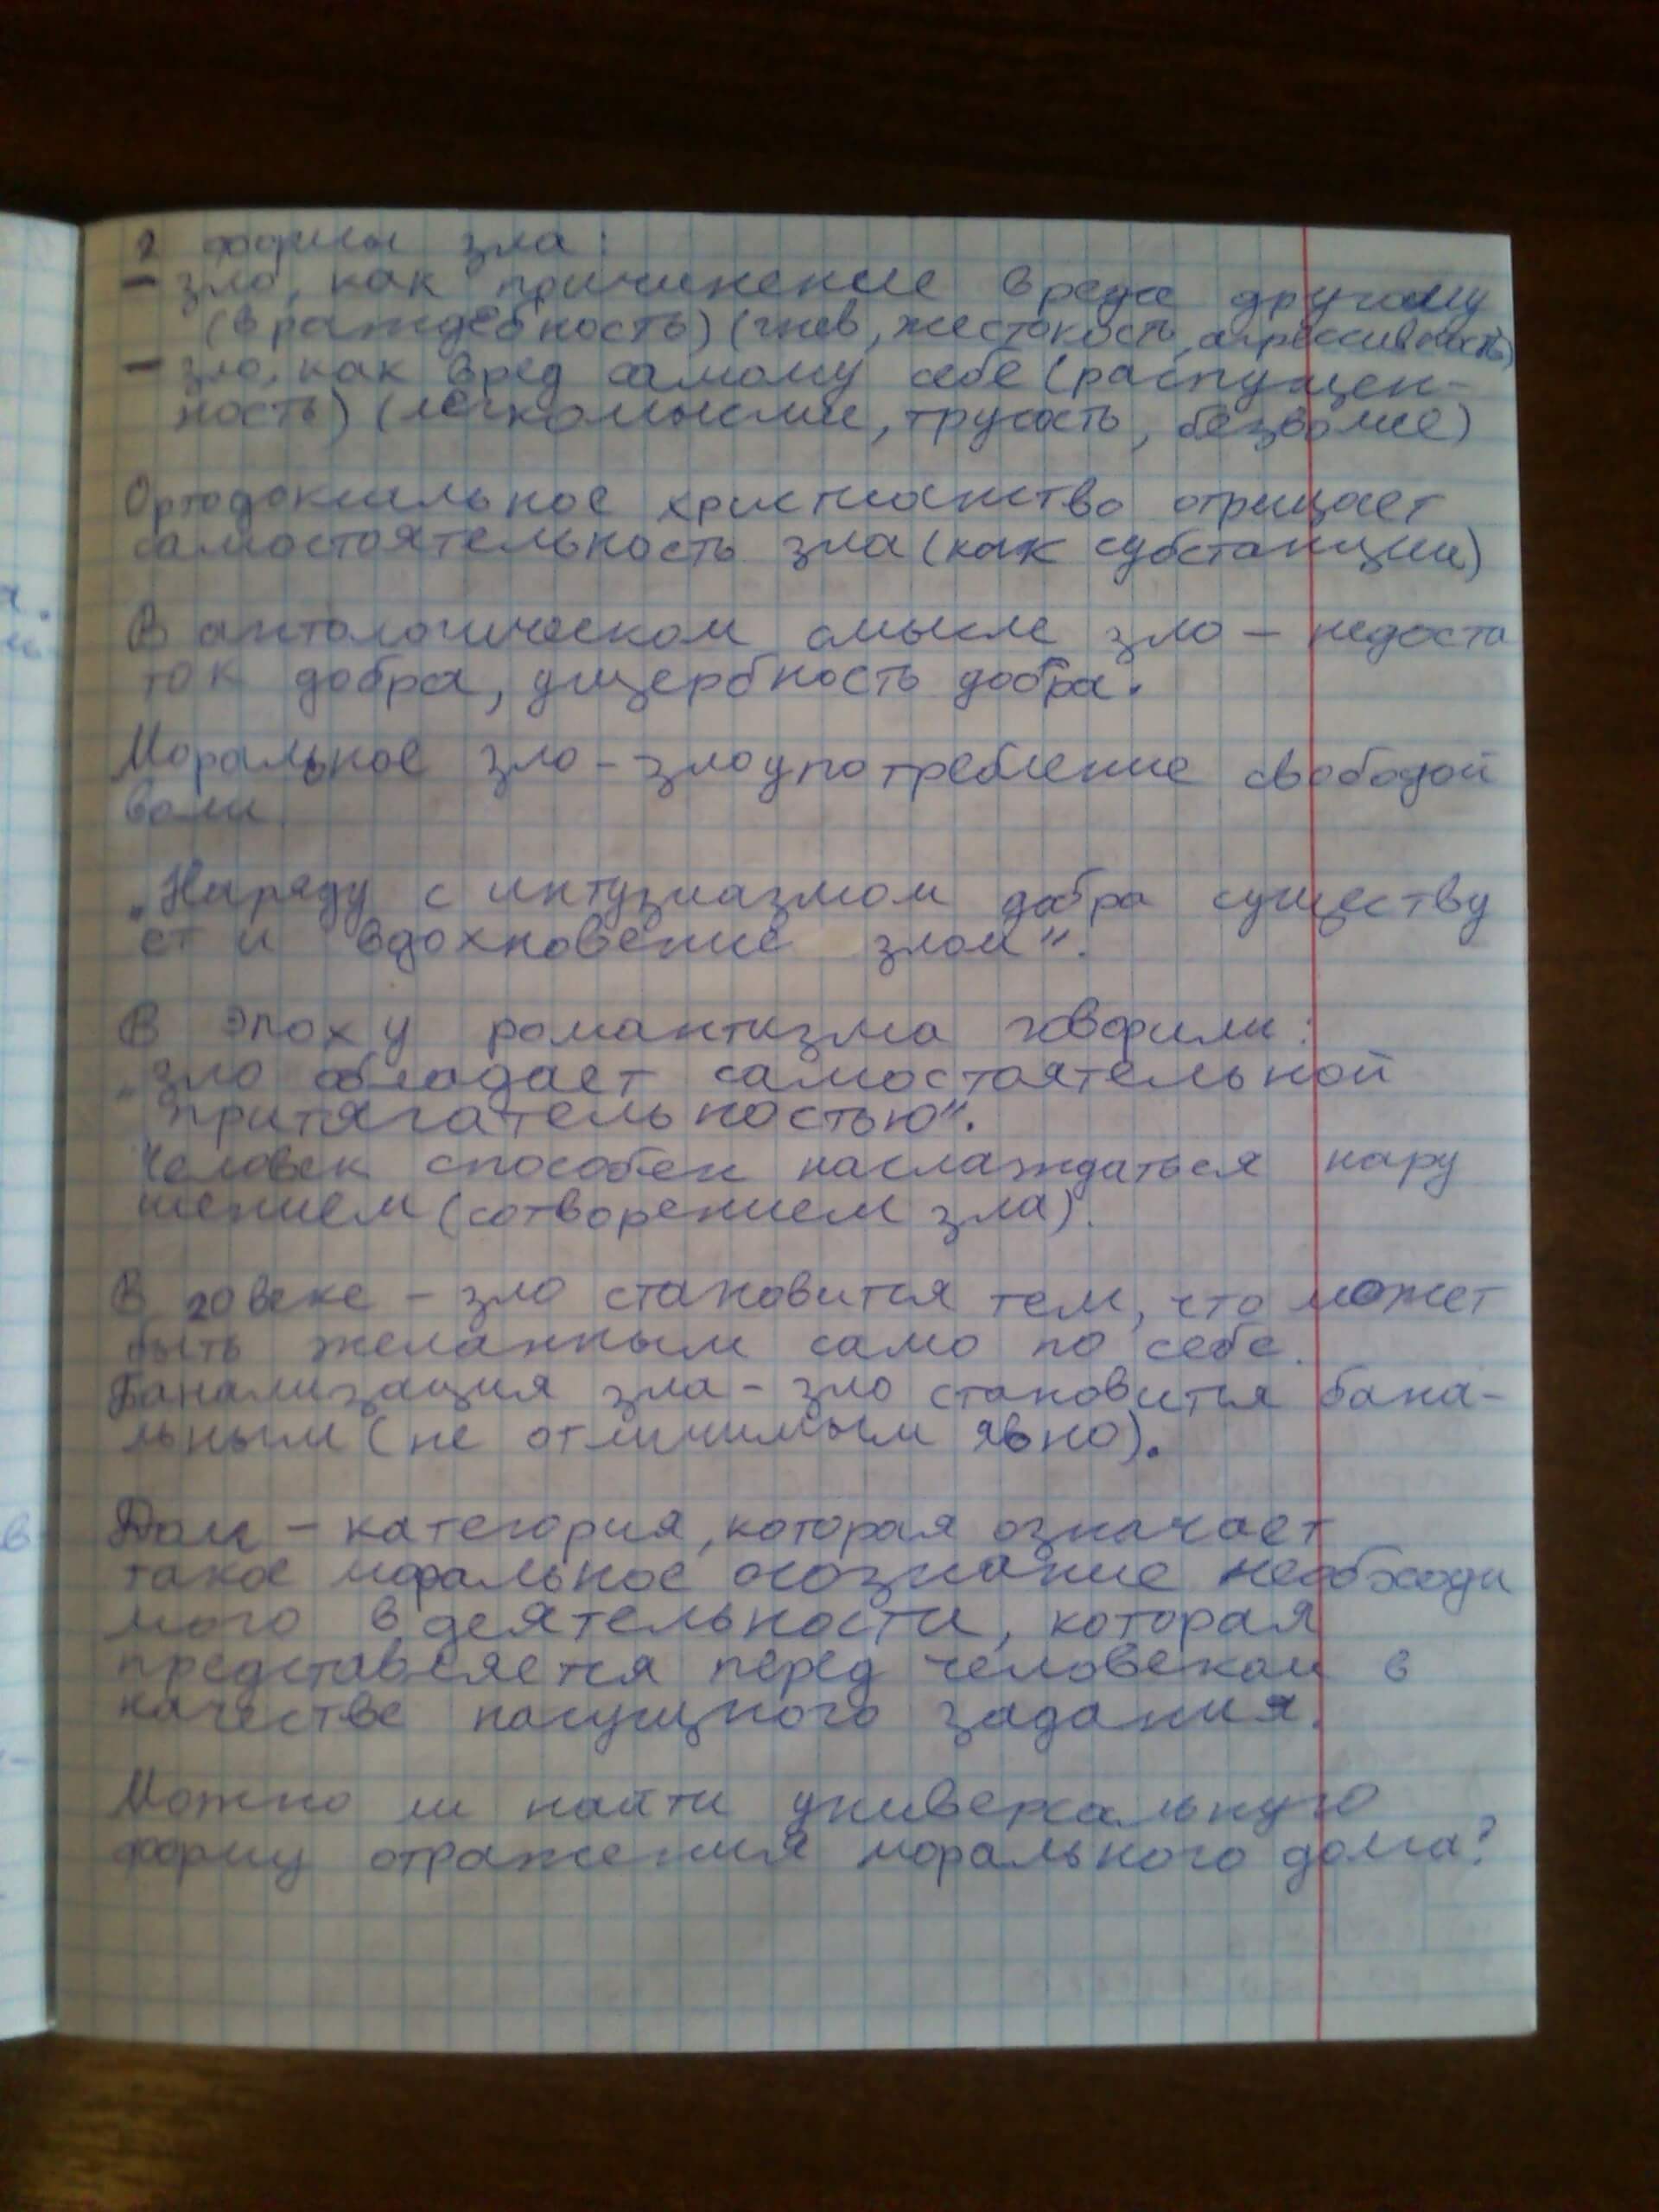 2 формы зла:
– зло, как причинение вреда другому
(враждебность) (гнев, жестокость, агрессивность)
– зло, как вред самому себе (распущен-
ность) (легкомыслие, трусость, безволие)
Ортодоксальное христианство отрицает
самостоятельность зла (как субстанции)
В антологическом смысле зло – недоста
ток добра, ущербность добра.
Моральное зло – злоупотребление свободой
воли.
„Наряду с интузиазмом добра существу
ет и вдохновение злом“.
В эпоху романтизма говорили:
„зло обладает самостоятельной
притягательностью“.
Человек способен наслаждаться нару
шением (сотворением зла).
В 20 веке – зло становится тем, что может
быть желанным само по себе.
Банализация зла – зло становится бана-
льным (не отличимым явно).
Долг – категория, которая означает
такое моральное осознание необходи
мого в деятельности, которая
представляется перед человеком в
качестве насущного задания.
Можно ли найти универсальную
форму отражения морального долга?